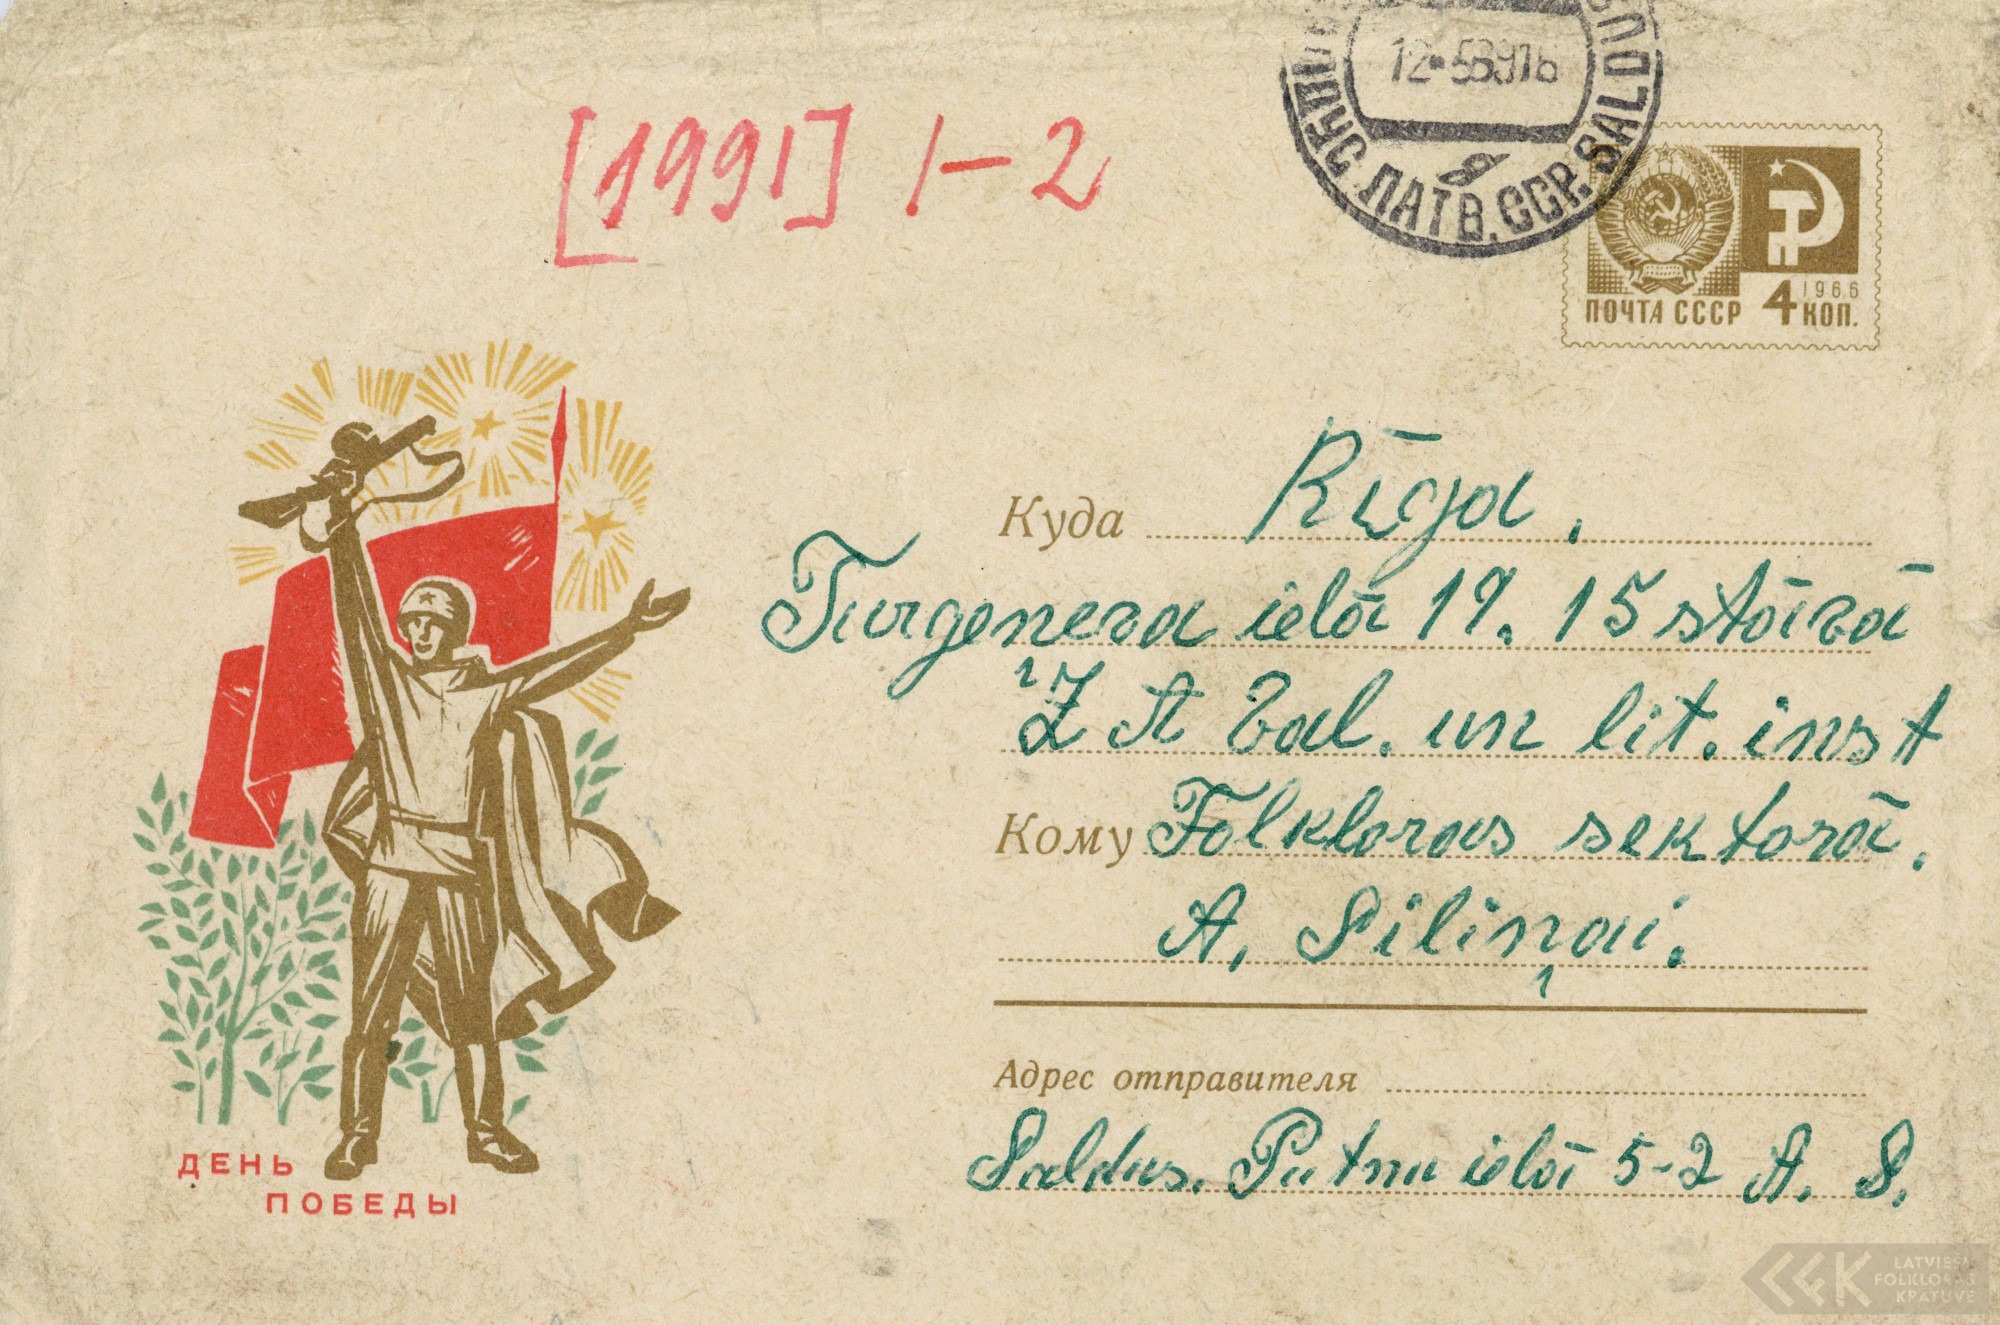 12-56916
САЛДУС ЛАТВ. ССР. SALDUS
[1991] 1-2
ПОЧТА СССР 4 КОП.
1966
Куда Rīga.
Turgeņeva ielā 19. 15 stāvā
ZA Val. un lit. inst
Кому Folkloras sektorā.
A. Siliņai.
Адрес отправителя
Saldus. Putnu ielā 5-2 A. S.
ДЕНЬ
ПОБЕДЫ
LATVIEŠU
FOLKLORAS
KRĀTUVE